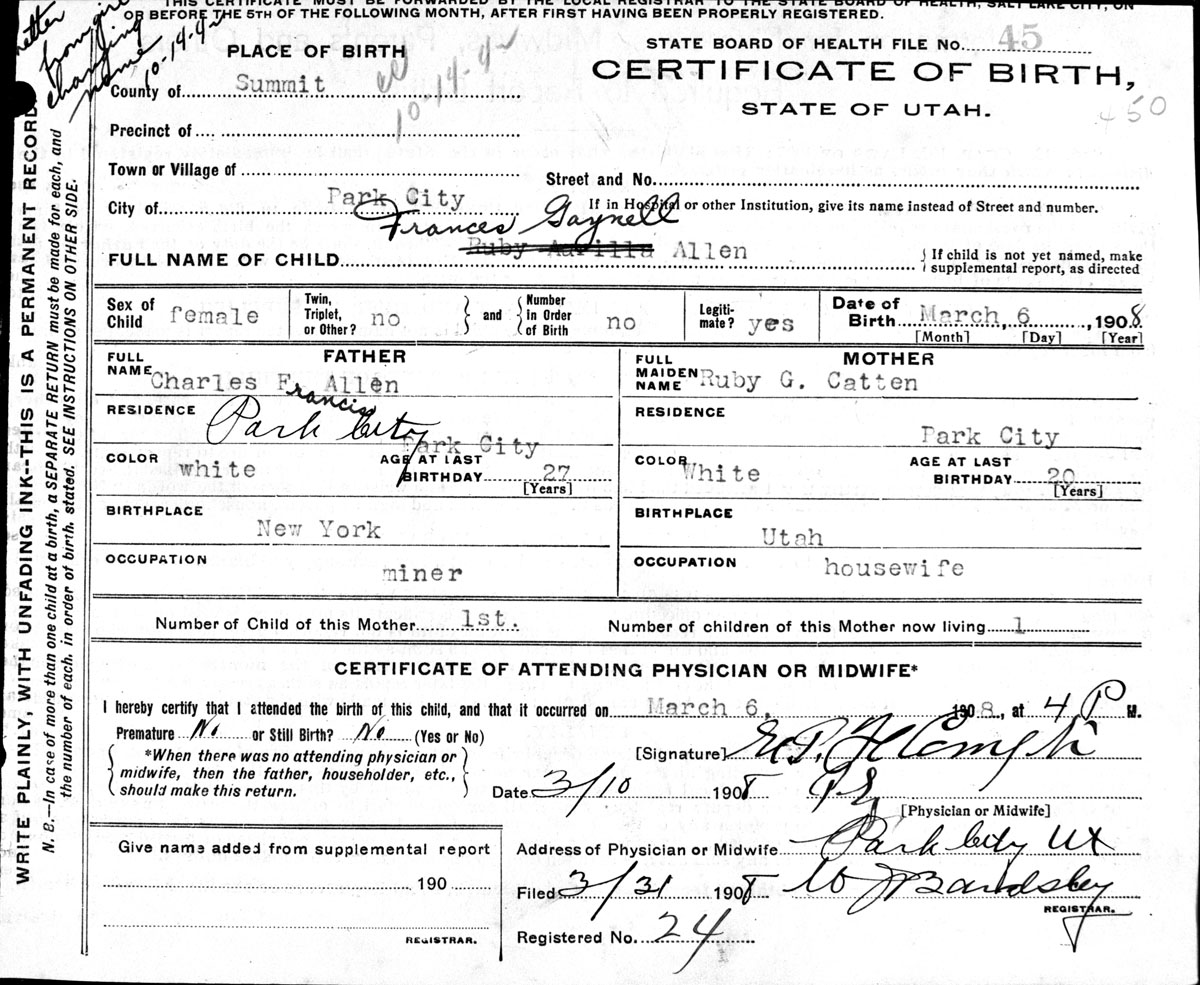 THIS CERTIFICATE MUST BE FORWARDED BY THE LOCAL REGISTRAR TO THE STATE BOARD OF HEALTH, SALT LAKE CITY, ON
OR BEFORE THE 5TH OF THE FOLLOWING MONTH, AFTER FIRST HAVING BEEN PROPERLY REGISTERED.
letter
from girl
changing
name
10-14-42
PLACE OF BIRTH
STATE BOARD OF HEALTH FILE No. 45
CERTIFICATE OF BIRTH,
STATE OF UTAH.
450
County of Summit
10-14-42
Precinct of
Town or Village of
Street and No.
City of Park City
If in Hospital or other Institution, give its name instead of Street and number.
Frances Gaynell
FULL NAME OF CHILD Ruby Aurilla Allen
If child is not yet named, make
supplemental report, as directed
Sex of Child female Twin, Triplet, or Other? no and Number in Order of Birth no Legiti-mate? yes Date of Birth March 6, 1908
[Month] [Day] [Year]
FATHER
FULL NAME Charles F. Allen
Francis
RESIDENCE Park City
Park City
COLOR white AGE AT LAST BIRTHDAY 27
[Years]
BIRTHPLACE
New York
OCCUPATION
miner
MOTHER
FULL MAIDEN NAME Ruby G. Catten
RESIDENCE
Park City
COLOR White AGE AT LAST BIRTHDAY 20
[Years]
BIRTHPLACE
Utah
OCCUPATION
housewife
Number of Child of this Mother 1st. Number of children of this Mother now living 1
CERTIFICATE OF ATTENDING PHYSICIAN OR MIDWIFE*
I hereby certify that I attended the birth of this child, and that it occurred on March 6, 1908, at 4 P M.
Premature No or Still Birth? No (Yes or No)
*When there was no attending physician or
midwife, then the father, householder, etc.,
should make this return.
[Signature]
Date 3/10 1908
[Physician or Midwife]
Give name added from supplemental report
190
REGISTRAR.
Address of Physician or Midwife Park City Ut
Filed 3/31 1908 W J Bardsley
REGISTRAR.
Registered No. 24
WRITE PLAINLY, WITH UNFADING INK-THIS IS A PERMANENT RECORD.
N. B.—In case of more than one child at a birth, a SEPARATE RETURN must be made for each, and
the number of each, in order of birth, stated. SEE INSTRUCTIONS ON OTHER SIDE.